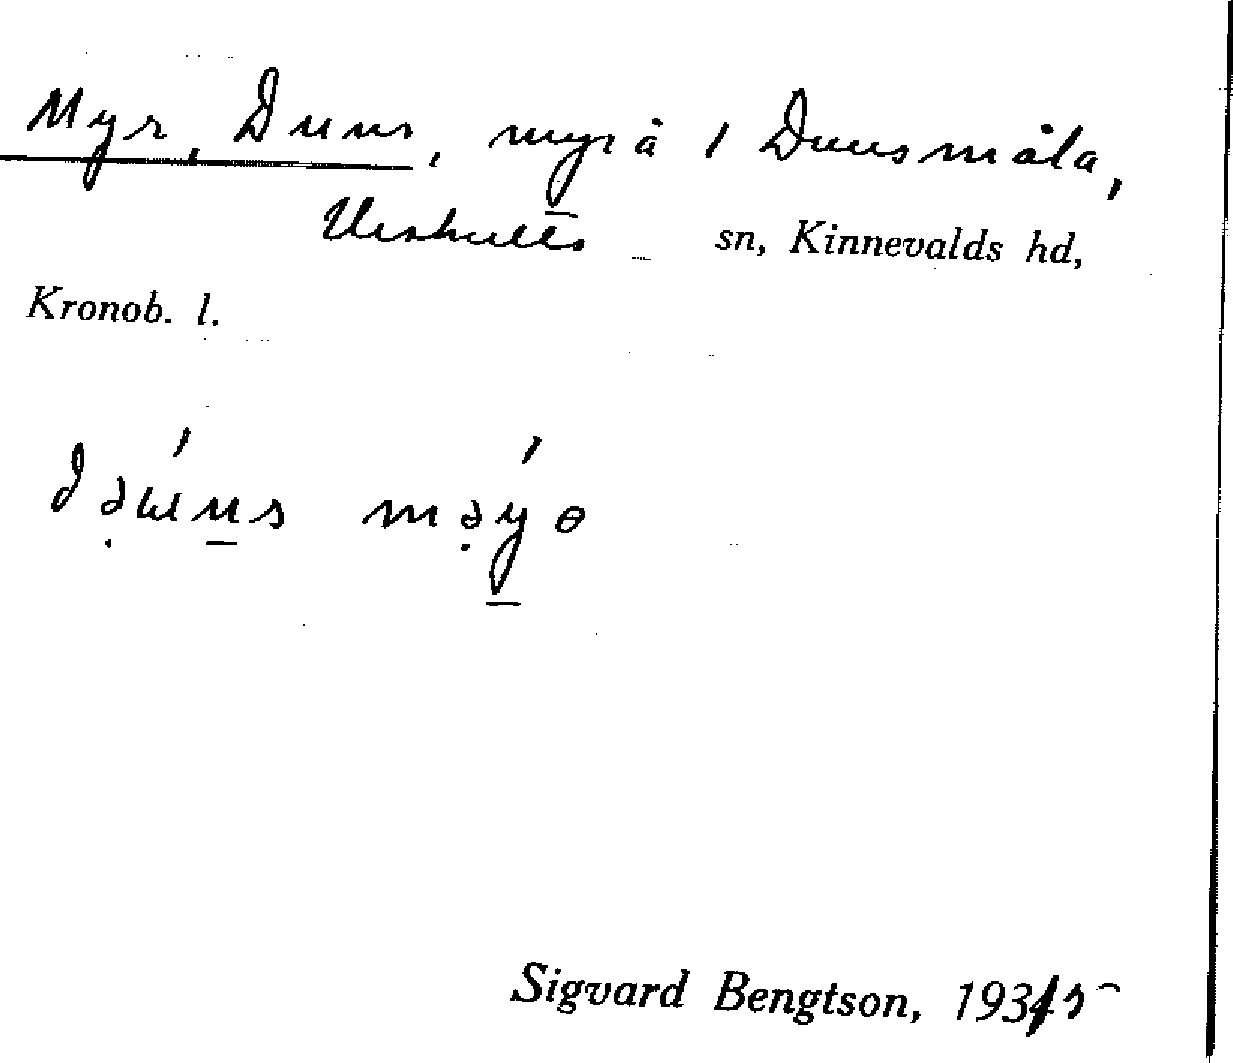 Myr, Duns, myr å 1 Dunsmåla,
Urshults sn, Kinnevalds hd,
Kronob. l.
dəúns məýɵ
Sigvard Bengtson, 1935